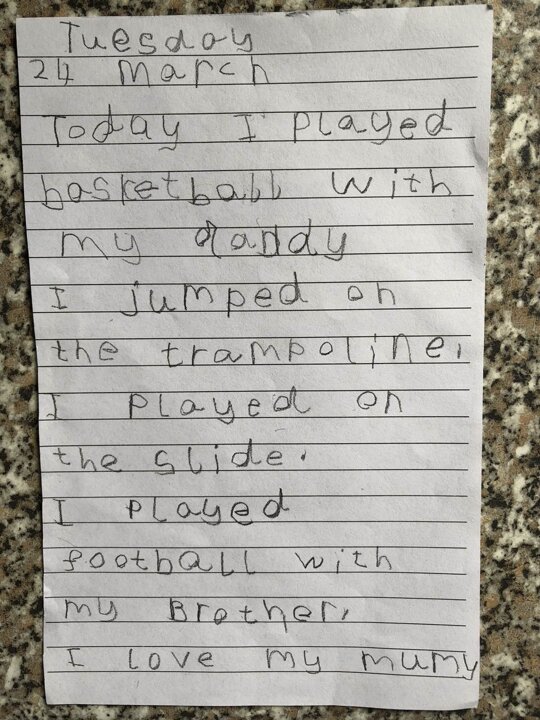 Tuesday
24 March
Today I Played
basketball with
my daddy
I jumped on
the trampoline.
I Played on
the slide.
I Played
football with
my Brother.
I love my mumy